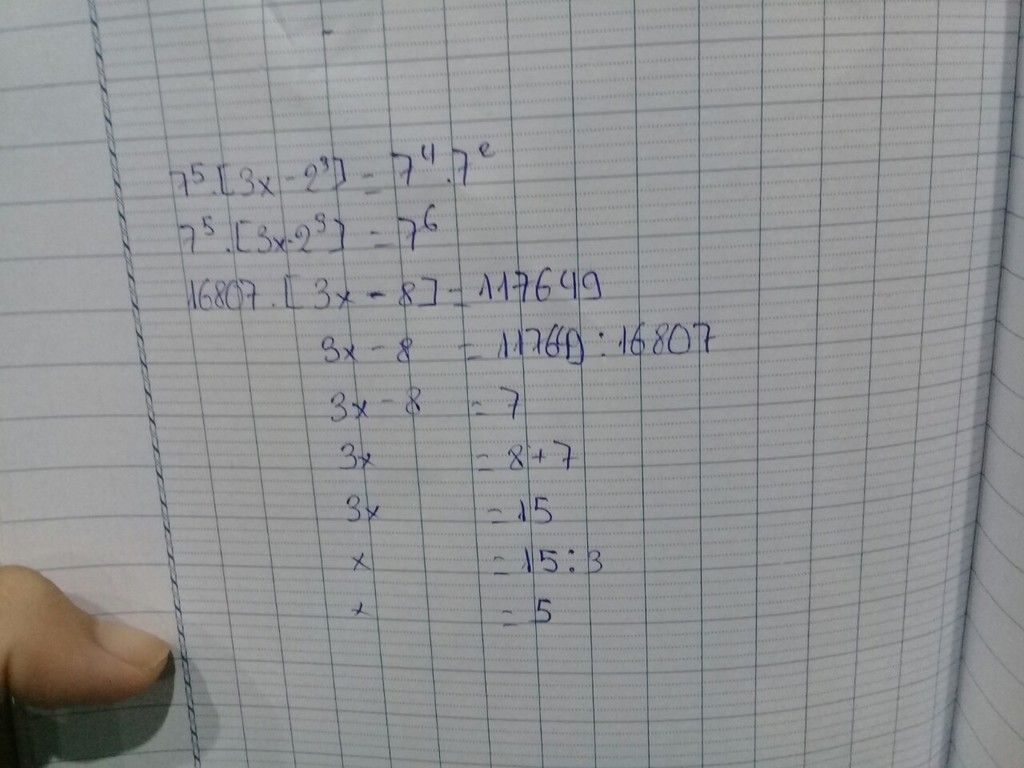 7⁵.[3x-2³] = 7⁴.7²
7⁵.[3x-2³] = 7⁶
16807.[3x-8] = 117649
3x-8 = 117649:16807
3x-8 = 7
3x = 8+7
3x = 15
x = 15:3
x = 5